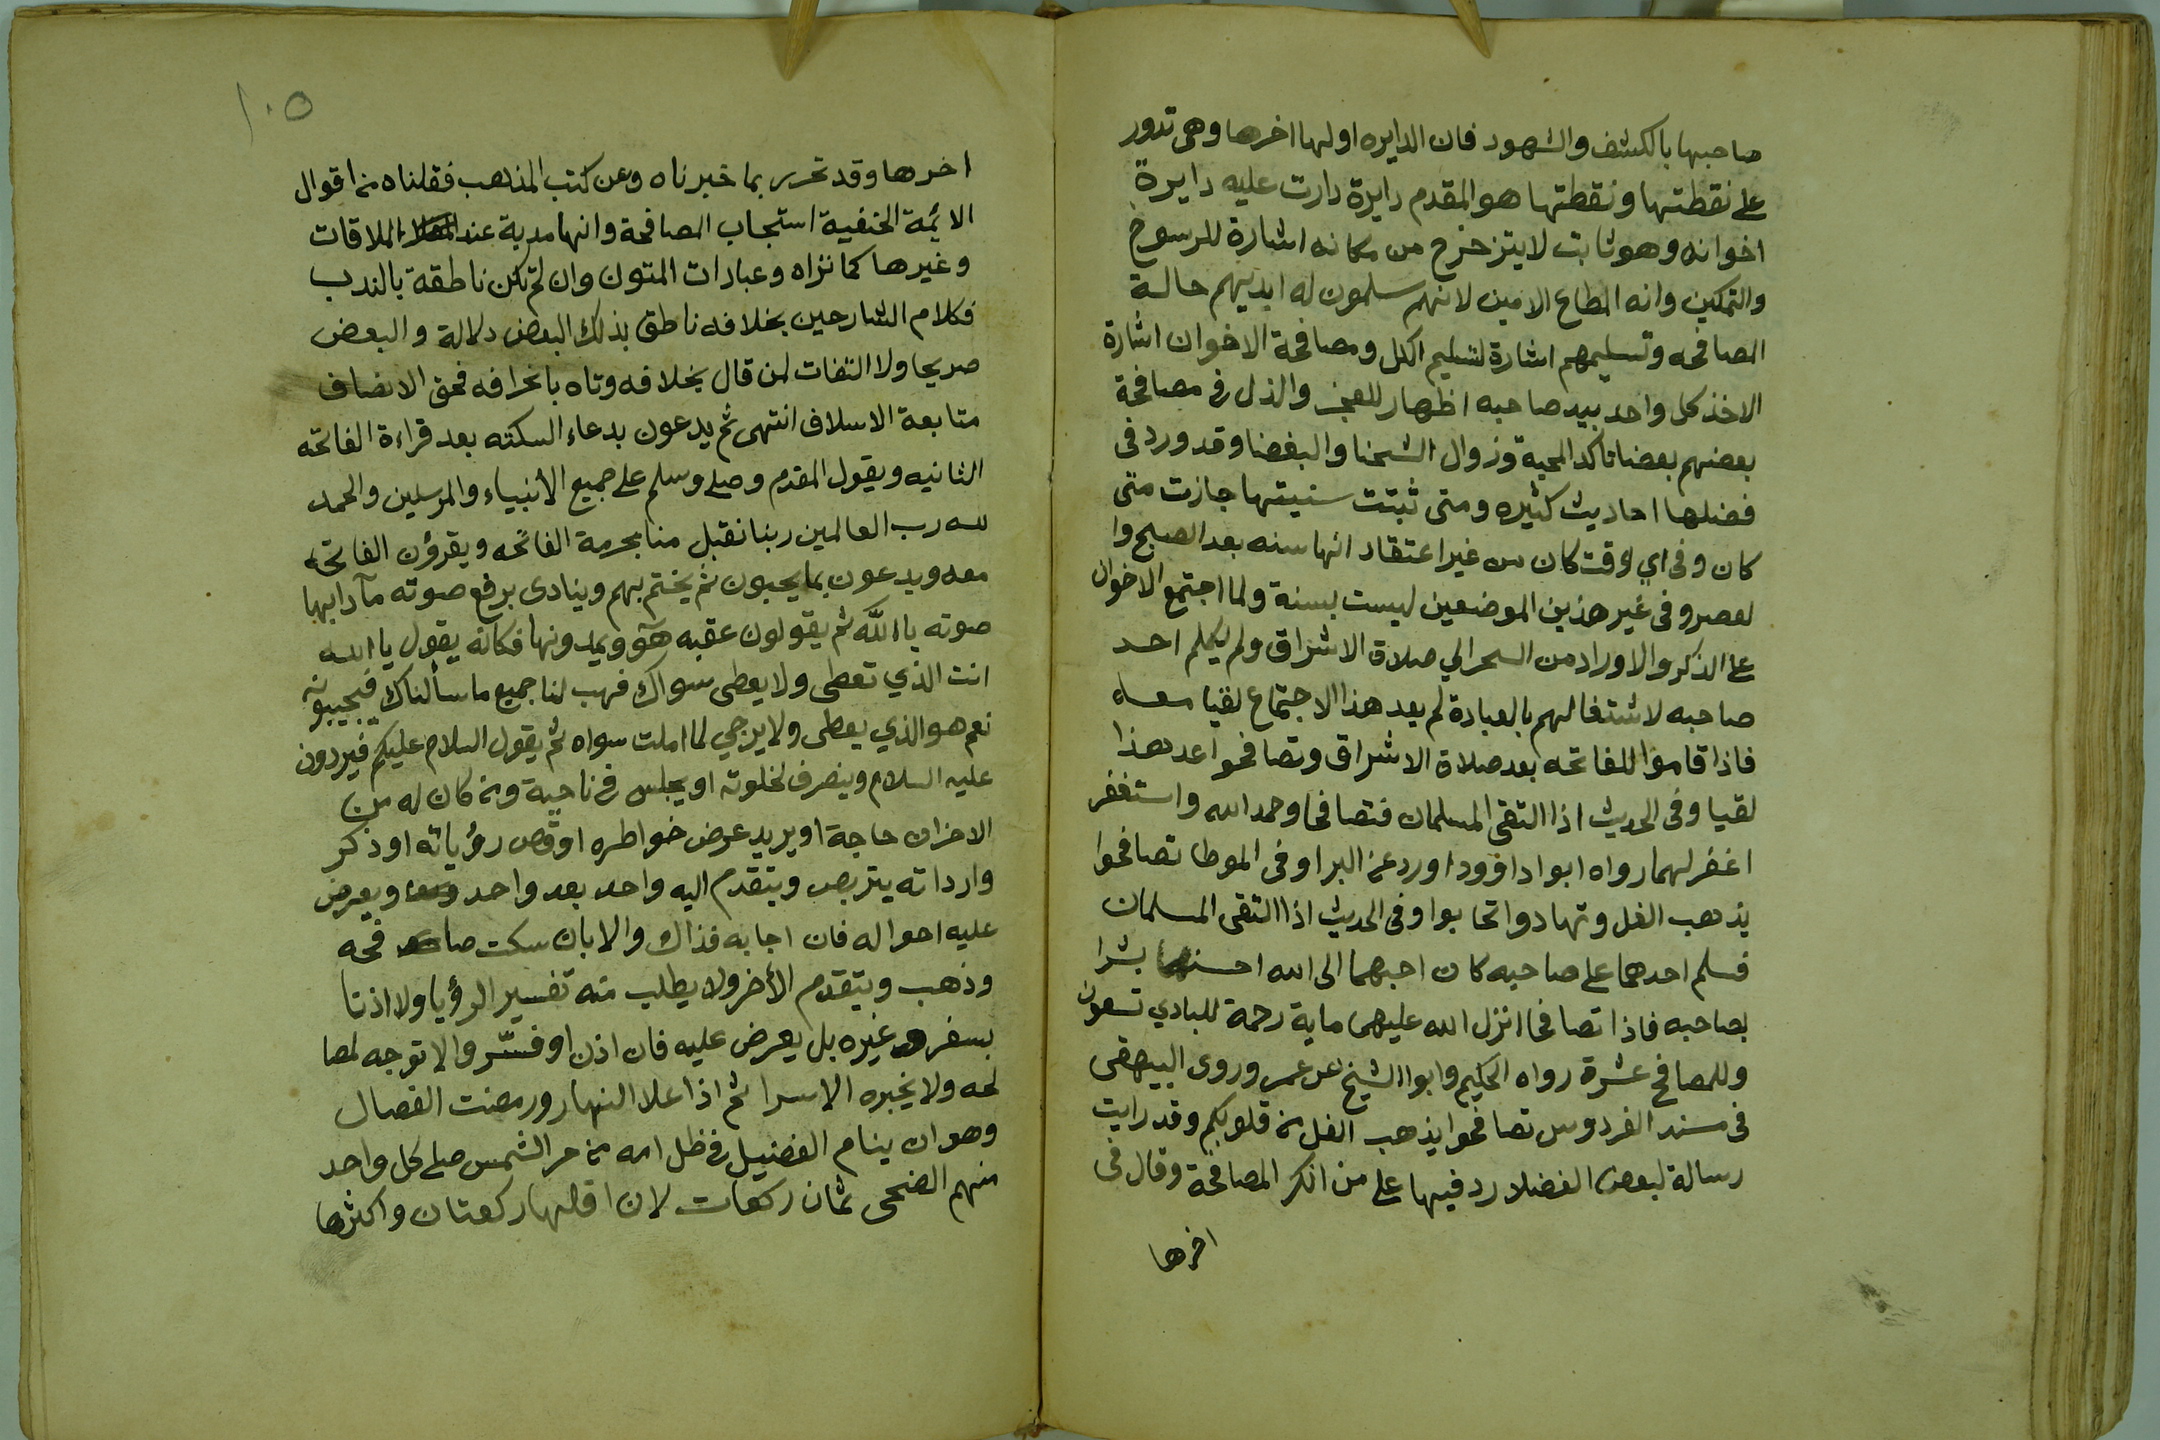 صاحبها بالكشف والشهود فان الدايره اولها اخرها وهى تدور
على نقطتها ونقطتها هو المقدم دايرة دارت عليه دايرة
اخوانه وهو ثابت لا يتزحزح من مكانه اشارة للرسوخ
والتمكين وانه المطاع الامين لانهم سلمون له ايديهم حالة
المصافحه وتسليمهم اشارة لتسليم الكل ومصافحة الاخوان اشارة
الاخذ كل واحد بيد صاحبه اظهار للعجز والذل فى مصافحة
بعضهم بعضا تاكد المحبة وزوال الشحنا والبغضا وقد ورد فى
فضلها احاديث كثيره ومتى ثبتت سنيتها جازت متى
كان وفى اي وقت كان من غير اعتقاد انها سنه بعد الصبح وا
لعصر وفى غير هذين الموضعين ليست بسنة ولما اجتمع الاخوان
على الذكر والاوراد من السحر الي صلاة الاشراق ولم يكلم احد
صاحبه لاشتغالهم بالعبادة لم يعد هذا الاجتماع لقيا معا
فاذا قاموا للفاتحه بعد صلاة الاشراق وتصافحوا عد هذا
لقيا وفى الحديث اذا التقى المسلمان فتصافحا وحمد الله واستغفر
اغفر لهما رواه ابوا داوود اورد عن البرا وفى الموطا تصافحوا
يذهب الغل وتهادوا تحابوا وفى الحديث اذا التقى المسلمان
فسلم احدهما على صاحبه كان احبهما الى الله احسنهما بشرا
بصاحبه فاذا تصافحا انزل الله عليهما ماية رحمة للبادي تسعون
وللمصافح عشرة رواه الحكيم وابوا الشيخ عن عمر وروى البيهقى
فى مسند الفردوس تصافحوا يذهب الغل من قلوبكم وقد رايت
رسالة لبعض الفضلا رد فيها على من انكر المصافحة وقال فى
اخرها
١٠٥
اخرها وقد تحرر بما خبرناه وعن كتب المذهب فقلناه من اقوال
الائمة الحنفية استجاب المصافحة وانها مدية عند الملاقات
وغيرها كما نزاه وعبادات المتون وان لم تكن ناطقة بالندب
فكلام الشارحين بخلافه ناطق بذلك البعض دلالة والبعض
صريحا ولا التفات لمن قال بخلافه وتاه بانحرافه فحق الانصاف
متابعة الاسلاف انتهى ثم يدعون بدعاء السكته بعد قراءة الفاتحه
الثانيه ويقول المقدم وصلى وسلم على جميع الأنبياء والمرسلين والحمد
لله رب العالمين ربنا تقبل منا بحرمة الفاتحه ويقرؤن الفاتحة
معه ويدعون بما يحبون ثم يختم بهم وينادى برفع صوته مآ دابها
صوته يا الله ثم يقولون عقبه هو ويمدونها فكانه يقول يا الله
انت الذي تعطى ولا يعطى سواك فهب لنا جميع ما سألناك فيجيبونه
نعم هو الذي يعطى ولا يرجي لما املت سواه ثم يقول السلام عليكم فيردون
عليه السلام وينصرف لخلوته او يجلس فى ناحية ومن كان له من
الاخزان حاجة او يريد عرض خواطره او قص رؤياته او ذكر
وارداته يتربص ويتقدم اليه واحد بعد واحد ويعرض
عليه احواله فان اجابه فذاك والا بان سكت صافحه
وذهب ويتقدم الأخر ولا يطلب منه تفسير الرؤيا ولا اذنا
بسفر وغيره بل يعرض عليه فان اذن او فسّر والا توجه لمصا
لحه ولا يخبره الاسرا ثم اذا علا النهار ورمضت الفصال
وهو ان ينام الفضيل فى ظل امه من حر الشمس صلى كل واحد
منهم الضحى ثمان ركعات لان اقلها ركعتان واكثرها